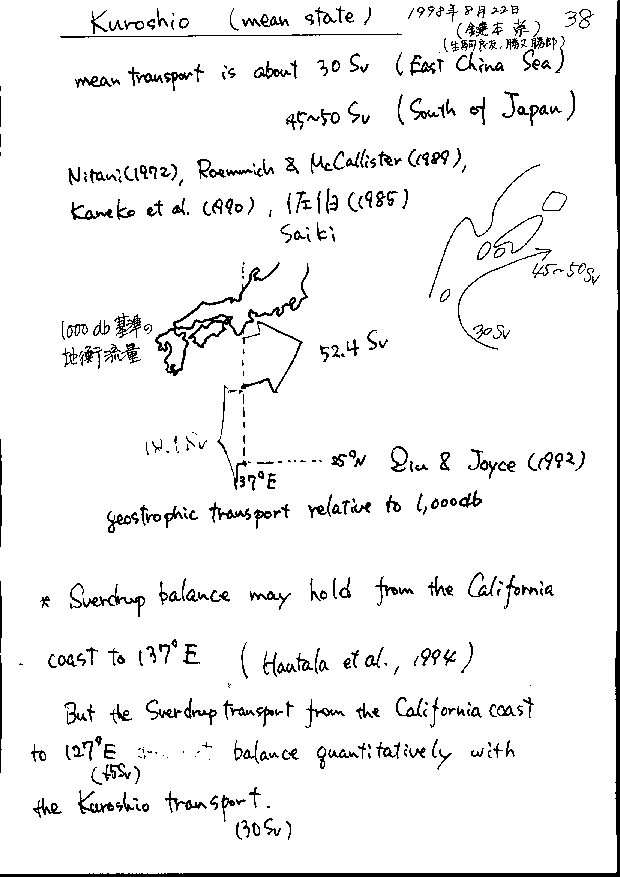 Kuroshio (mean state)
1998年8月22日
38
mean transport is about 30 Sv (East China Sea)
45~50 Sv (South of Japan)
Nitani (1972), Roemmich & McCallister (1989),
Kaneko et al. (1990), 佐伯 (1985)
Saiki
45~50 Sv
30 Sv
1000 db 基準の
地衡流量
52.4 Sv
25°N Qiu & Joyce (1992)
137°E
geostrophic transport relative to 1,000db
* Sverdrup balance may hold from the California
coast to 137°E (Hautala et al., 1994)
But the Sverdrup transport from the California coast
to 127°E balance quantitatively with
the Kuroshio transport.
(30 Sv)